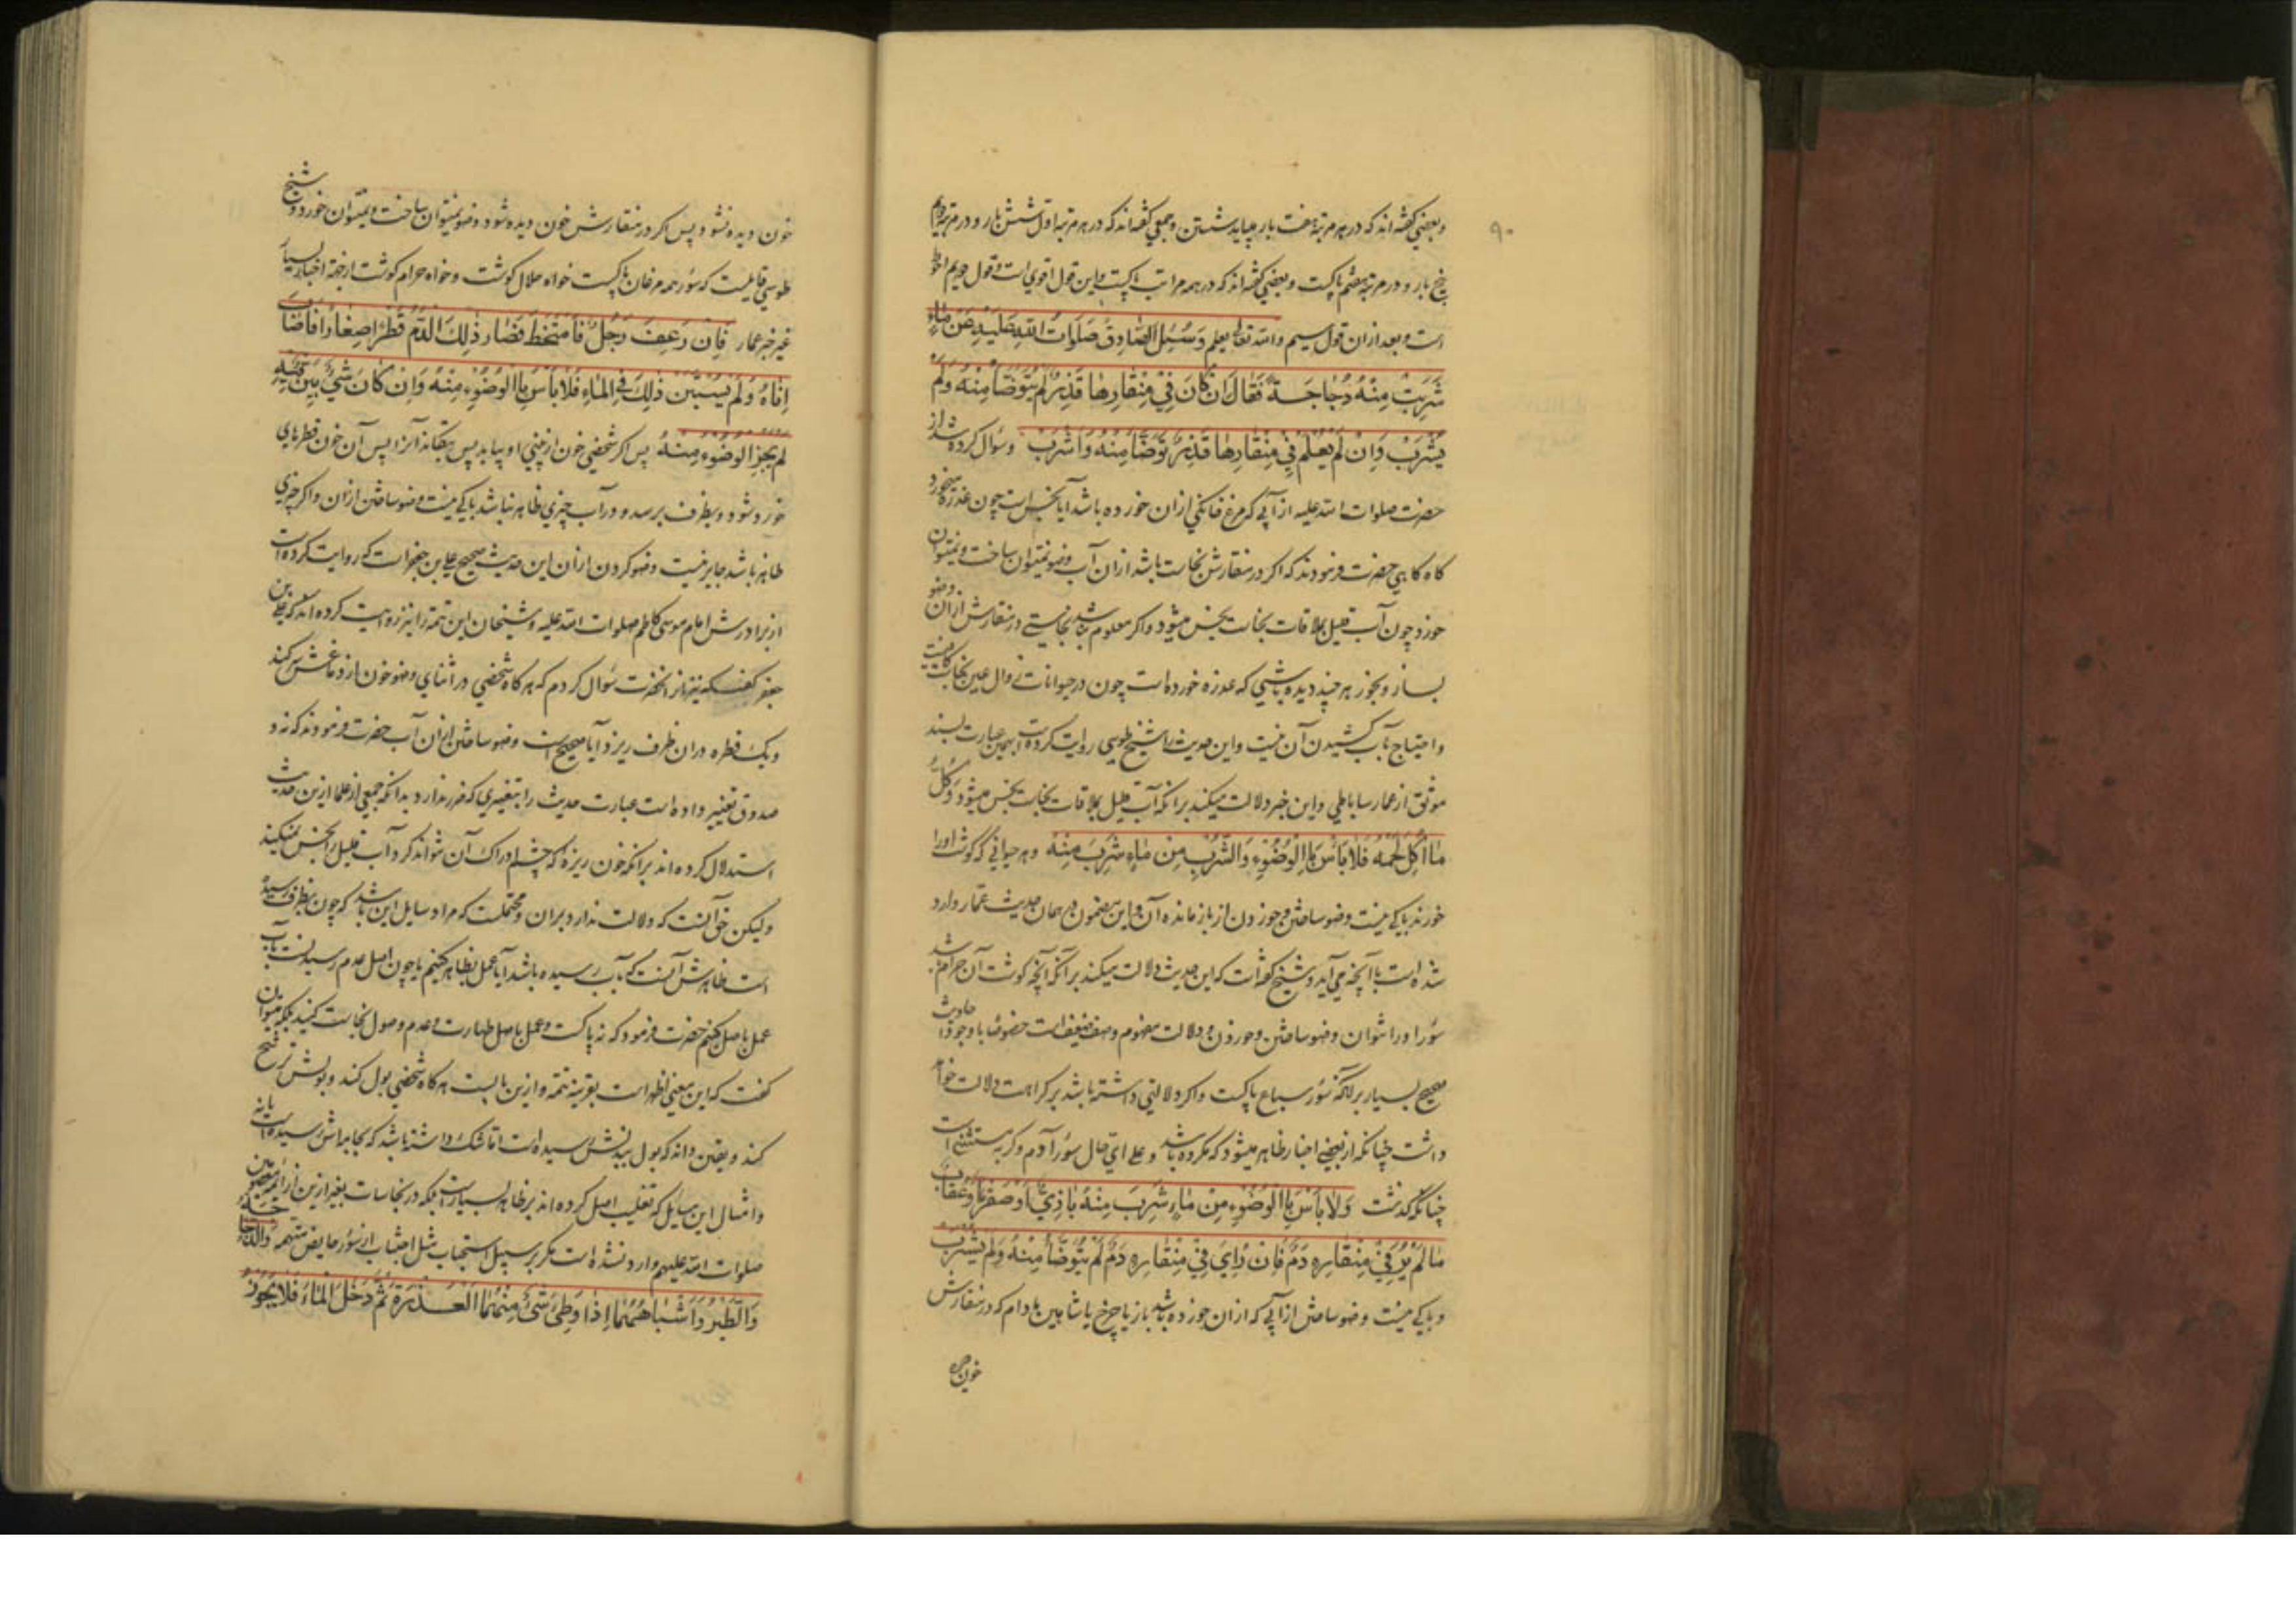 ۹۰
و بعضی گفته‌اند که در هر مرتبهٔ هفت بار میباید شستن و جمعی گفته‌اند که در هر مرتبه اول شش بار و در مرتبه دویم
پنج بار و در مرتبه هفتم پاکست و بعضی گفته‌اند که در همه مراتب پاکست و این قول اقوی است و قول دویم احوط
است و بعد ازان قول سیم والله تعالی یعلم وَسُئِلَ الصَّادِقُ صَلَوَاتُ اللّٰهِ عَلَيْهِ عَنْ مَاءٍ
شَرِبَتْ مِنْهُ دُجَاجَةٌ فَقَالَ اِنْ كَانَ فِيْ مِنْقَارِهَا قَذِرٌ لَمْ يُتَوَضَّأْ مِنْهُ وَلَمْ
يُشْرَبْ وَاِنْ لَمْ يُعْلَمْ فِيْ مِنْقَارِهَا قَذِرٌ تَوَضَّأْ مِنْهُ وَاشْرَبْ وسؤال کرده شد از
حضرت صلوات الله علیه از آبی که مرغ خانکی ازان خورده باشد آیا نجس است چون عذره میخورد
کاه کاهی حضرت فرمودند که اکر در منقارش نجاست باشد ازان آب وضو نمیتوان ساخت و نمیتوان
خورد چون آب قلیل بملاقات نجاست نجس میشود و اکر معلوم نباشد نجاستی در منقارش ازان وضو
بساز و بخور هر چند دیده باشی که عذره خورده است چون در حیوانات زوال عین نجاست کافیست
و احتیاج بآب کشیدن آن نیست و این حدیث را شیخ طوسی روایت کرده است بهمین عبارت بسند
موثق از عمار ساباطی و این خبر دلالت میکند برانکه آب قلیل بملاقات نجاست نجس میشود وَكُلُّ
مَا اُكِلَ لَحْمُهُ فَلَا بَأْسَ بِالْوُضُوْءِ وَالشُّرْبِ مِنْ مَاءٍ شَرِبَ مِنْهُ وهر حیوانی که کوشت اورا
خورند باکی نیست وضو ساختن و خوردن از باز مانده آن و این مضمون در همان حدیث عمار وارد
شده است با آنچه می‌آید و شیخ کفته است که این حدیث دلالت میکند برانکه آنچه کوشت آن حرام باشد
سؤر اورا نتوان وضو ساختن و خوردن و دلالت مفهوم وصف ضعیفست خصوصا با وجود احادیث
صحیح بسیار برانکه سؤر سباع پاکست و اکر دلالتی داشته باشد بر کراهت دلالت خواهد
داشت چنانکه از بعضی اخبار ظاهر میشود که مکروه باشد و علی ای حال سؤر آدم و کربه مستثنی است
چنانکه کذشت وَلَا بَأْسَ بِالْوُضُوْءِ مِنْ مَاءٍ شَرِبَ مِنْهُ بَازِيٌّ اَوْ صَقْرٌ اَوْ عُقَابٌ
مَا لَمْ يُرَ فِيْ مِنْقَارِهِ دَمٌ فَاِنْ رُاِيَ فِيْ مِنْقَارِهِ دَمٌ لَمْ يُتَوَضَّأْ مِنْهُ وَلَمْ يُشْرَبْ
و باکی نیست وضو ساختن از آبی که ازان خورده باشد باز یا چرخ یا شاهین مادام که در منقارش
خون دیده نشود و پس اکر در منقارش خون دیده شود وضو نمیتوان ساخت و نمیتوان خورد و شیخ
طوسی قایلست که سؤر همه مرغان پاکست خواه حلال کوشت و خواه حرام کوشت از جهة اخبار بسیار
غیر خبر عمار فَاِنْ رَعِفَ رَجُلٌ فَامْتَخَطَ فَصَارَ ذٰلِكَ الدَّمُ قَطْرًا صِغَارًا فَاَصَابَ
اِنَاهُ وَلَمْ يَسْتَبِنْ ذٰلِكَ فِي الْمَاءِ فَلَا بَأْسَ بِالْوُضُوْءِ مِنْهُ وَاِنْ كَانَ شَيْءٌ بَيِّنٌ فِيْهِ
لَمْ يَجُزِ الْوُضُوْءُ مِنْهُ پس اکر شخصی خون از بینی او بیاید پس بیفکند آنرا پس آن خون قطرهای
خورد شود و بظرف برسد و در آب چیزی ظاهر نباشد باکی نیست وضو ساختن ازان و اکر چیزی
ظاهر باشد جایز نیست وضو کردن ازان این حدیث صحیح علی بن جعفر است که روایت کرده است
از برادرش امام موسی کاظم صلوات الله علیه و شیخان این تتمه را نیز روایت کرده‌اند که علی بن
جعفر کفت که نیز از انحضرت سؤال کردم که هر کاه شخصی در اثنای وضو خون از دماغش سر کند
و یک قطره دران ظرف ریزد آیا صحیح است وضو ساختن ازان آب حضرت فرمودند که نه و
صدوق تغییر داده است عبارت حدیث را بتغییری که ضرر ندارد بدانکه جمعی از علما ازین حدیث
استدلال کرده‌اند برانکه خون ریزهٔ که چشم ادراک آن نتواند کرد آب قلیل را نجس نمیکند
ولیکن حق آنست که دلالت ندارد بران و محتملست که مراد سایل این باشد که چون بظرف رسیده
است ظاهرش آنست که بآب رسیده باشد آیا عمل بظاهر کنیم یا چون اصل عدم رسیدنست بآب
عمل باصل کنیم حضرت فرمود که نه پاکست و عمل باصل طهارت و عدم وصول نجاست کنید بلکه میتوان
کفت که این معنی اظهر است بقرینه تتمه و ازین بابست هر کاه شخصی بول کند و بولش ترشح
کند و یقین داند که بول ببدنش رسیده است اما شک داشته باشد که بجامه‌اش رسیده است یا نه
و امثال این مسایل که تغلیب اصل کرده‌اند بر ظاهر بسیار است بلکه در نجاسات بغیر ازین از ائمه معصومین
صلوات الله علیهم وارد نشده است مکر بر سبیل استحباب مثل اجتناب از سؤر حایض متهمه وَالدَّجَاجَةُ
وَالطَّيْرُ وَاَشْبَاهُهُمَا اِذَا وَطِئَ شَيْءٌ مِنْهُمَا الْعَذِرَةَ ثُمَّ دَخَلَ الْمَاءَ فَلَا يَجُوْزُ